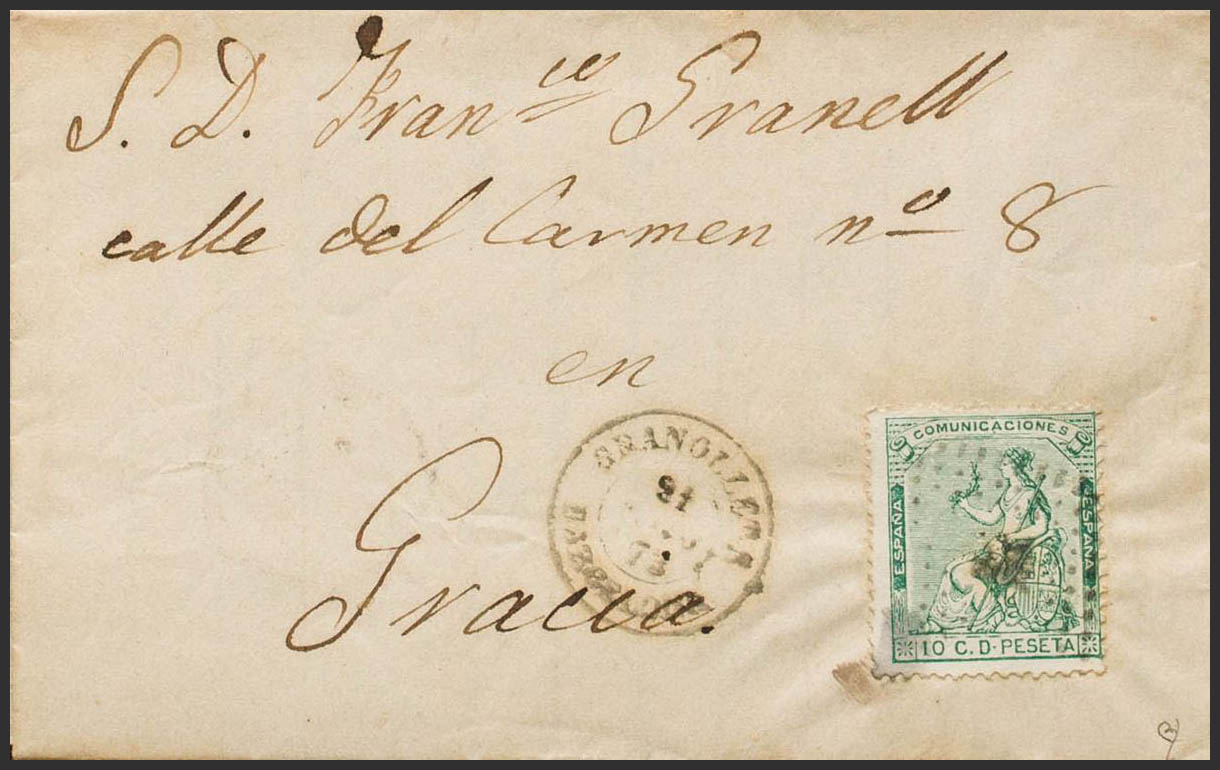 S. D. Fran^co Granell
calle del Carmen nº 8
en
Gracia.
GRANOLLERS
BARCELONA
COMUNICACIONES
ESPAÑA
ESPAÑA
10 C. D. PESETA